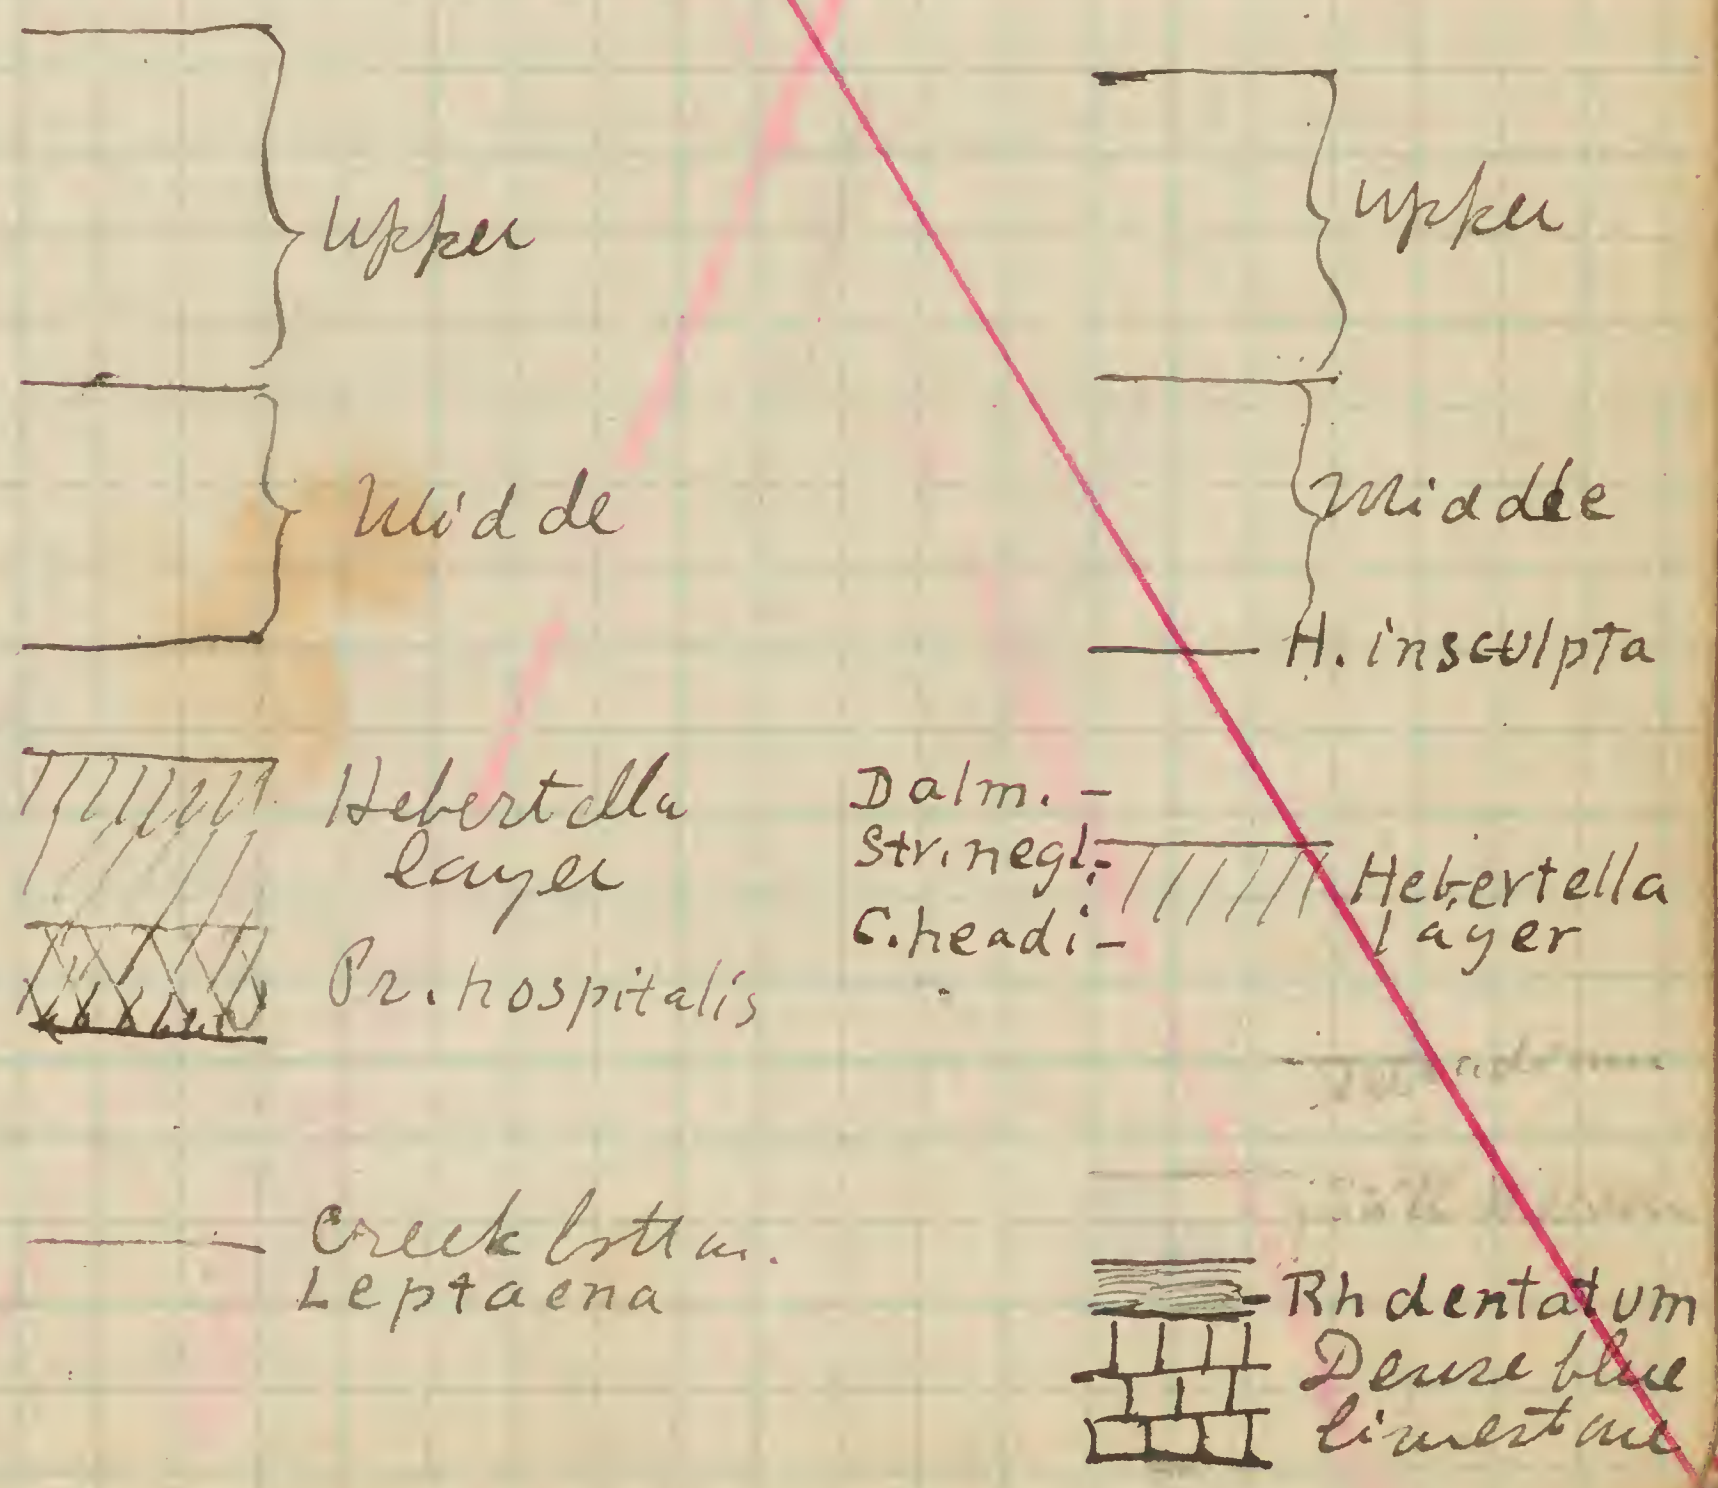 Upper
Midde
Hebertella
layer
Pr. hospitalis
Creek bottom.
Leptaena
Upper
Middle
H. insculpta
Dalm. -
Str. negl. -
C. headi -
Hebertella
layer
Rh dentatum
Dense blue
limestone